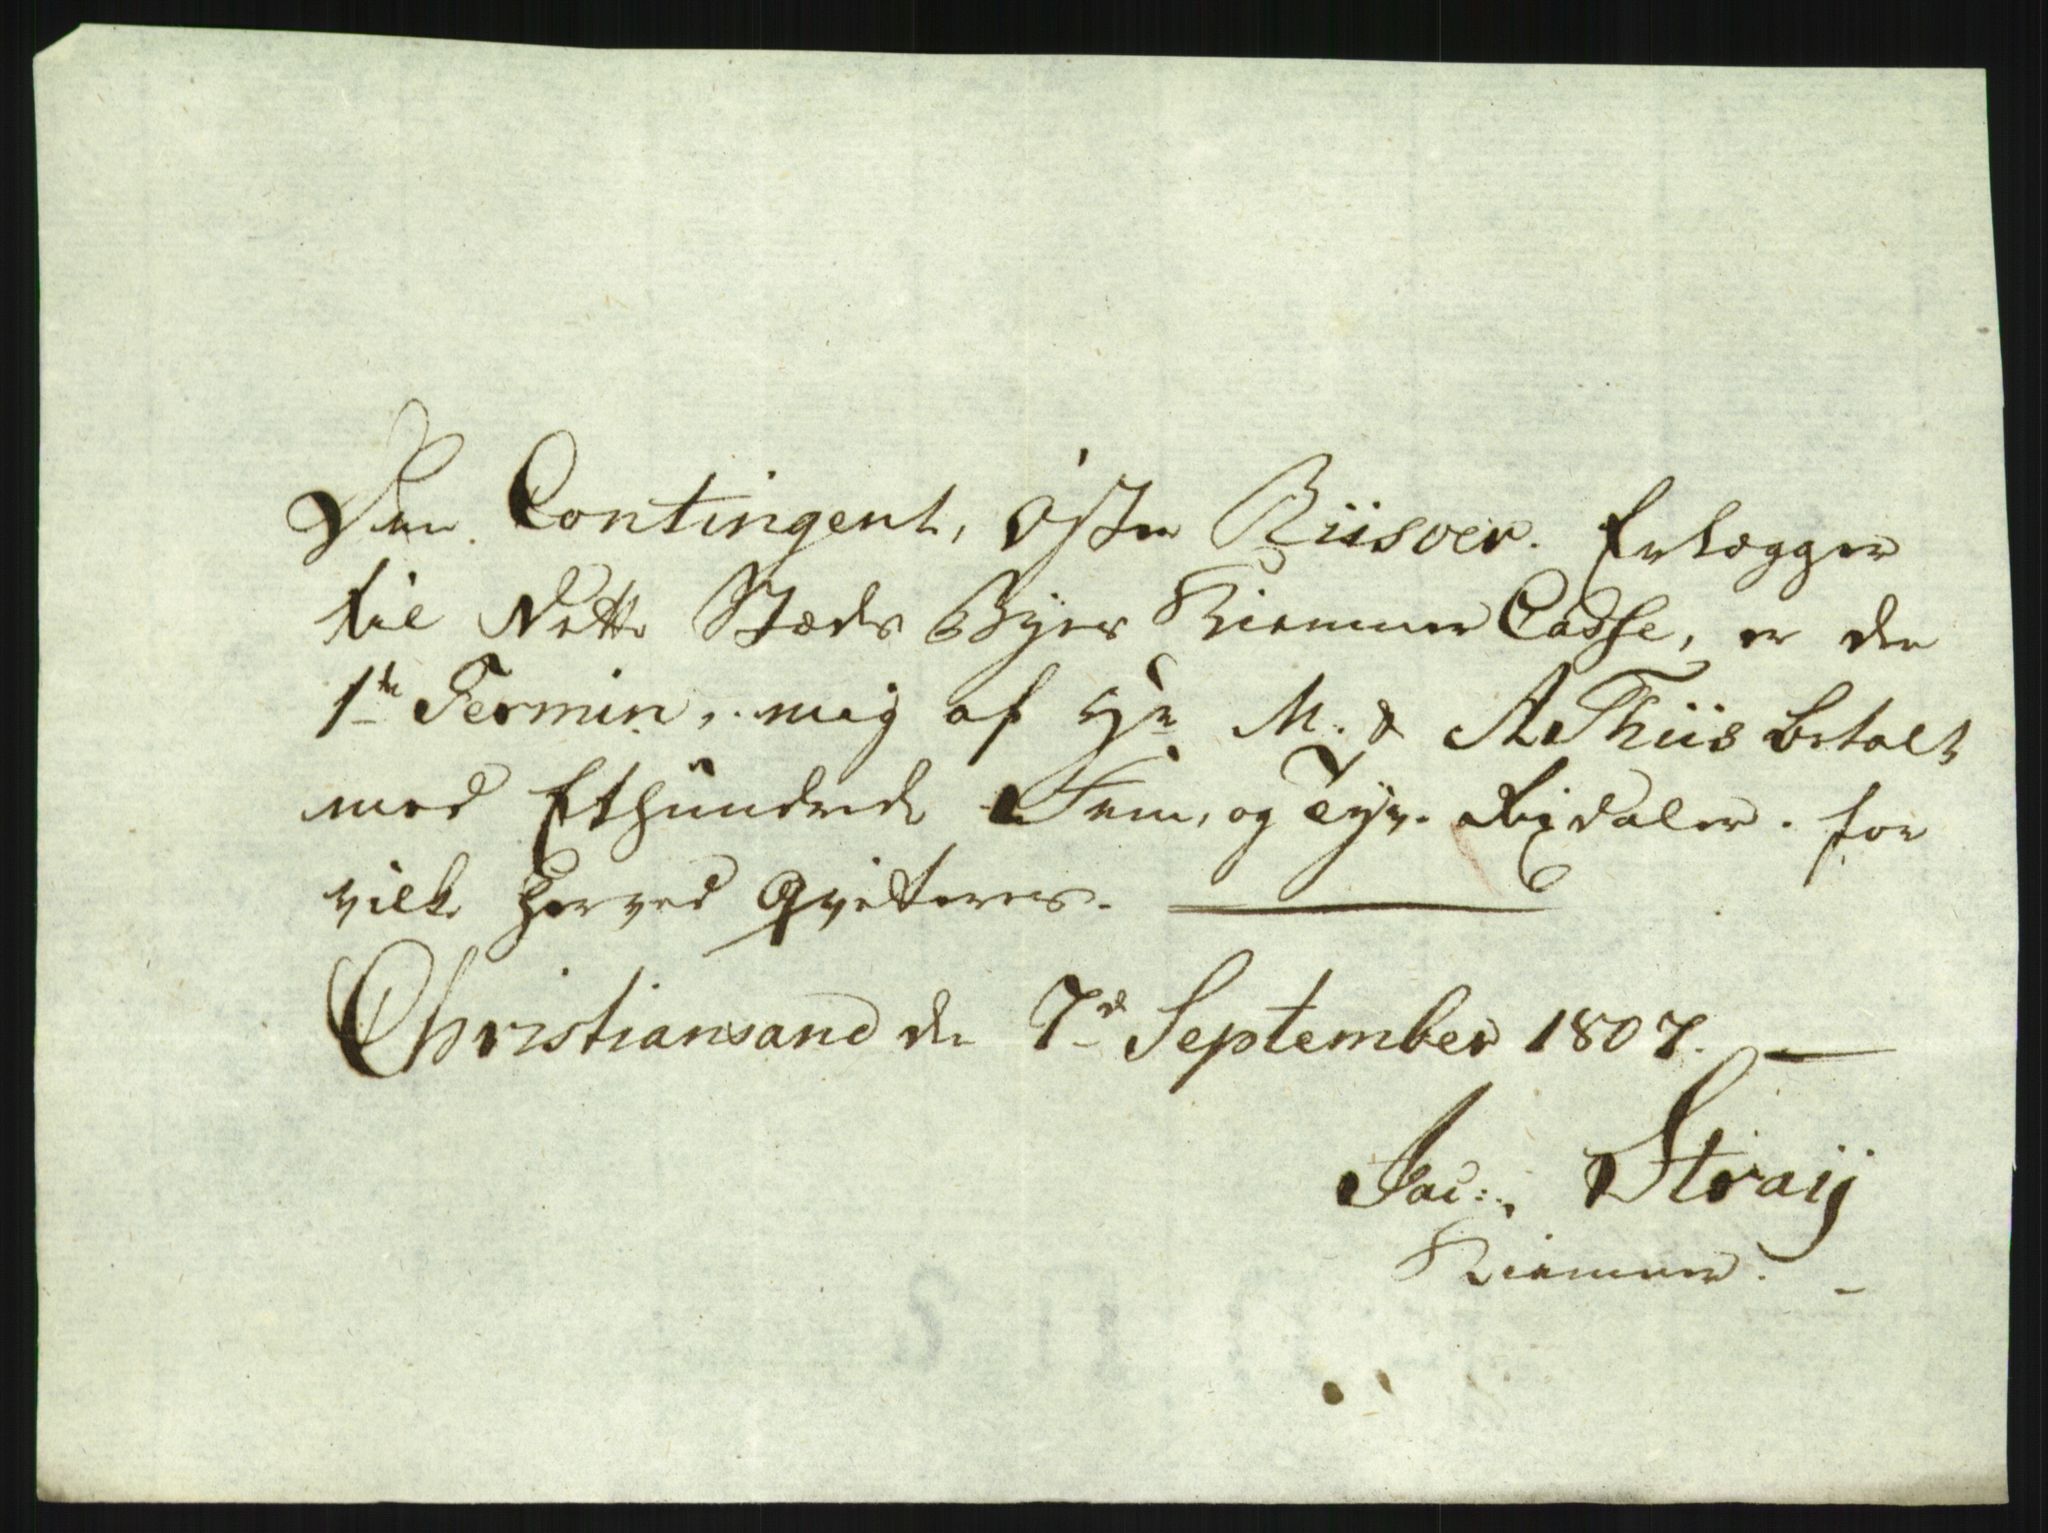 Den Contingent, Öster Riisöer. Erlægger
til dette Stæds Byes Kiemner Casse, er den
1te Termin, mig af Hr M. & A Thiis betalt
med Ethündrede Fem, og Tyve Rixdaler. for
vilke herved qvitteres.
Christiansand den 7d September 1807.
Jac: Straÿ
Kiemner.